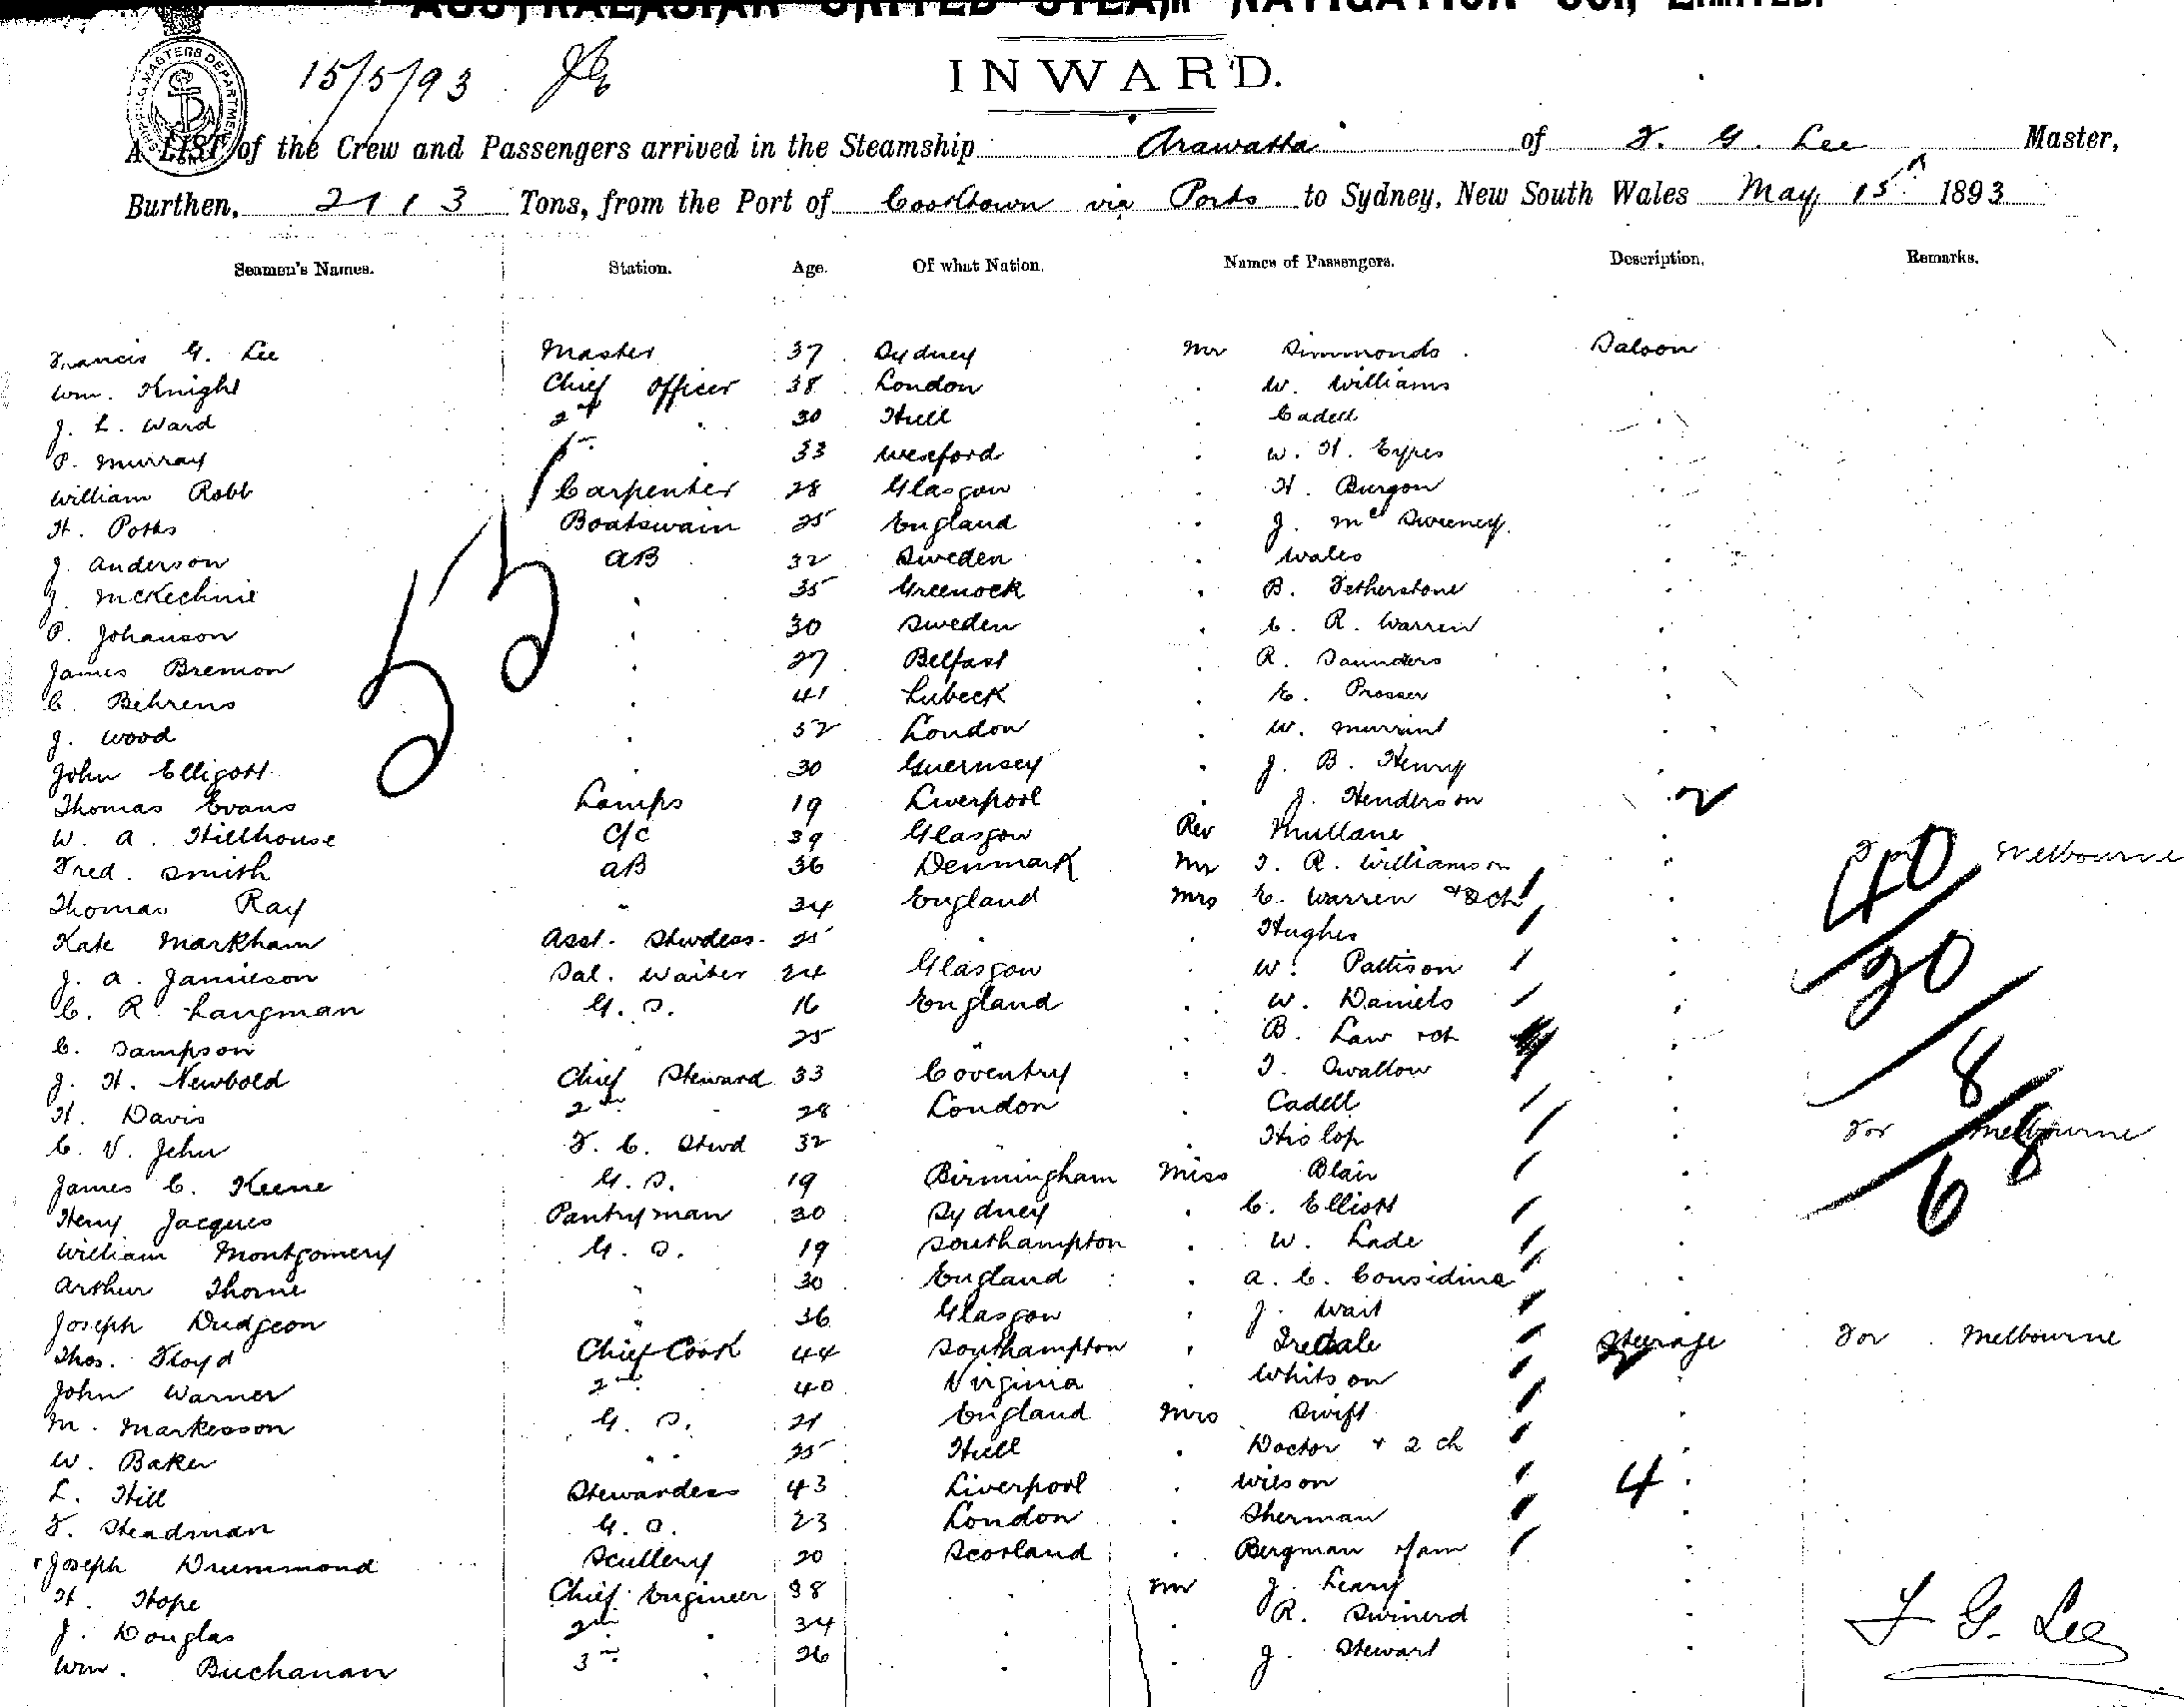 AUSTRALASIAN UNITED STEAM NAVIGATION CO., LIMITED.
INWARD.
15/5/93
SHIPPING MASTERS DEPARTMENT
A LIST of the Crew and Passengers arrived in the Steamship Arawatta of F. G. Lee Master,
Burthen, 2113 Tons, from the Port of Cooktown via Ports to Sydney, New South Wales May 15th 1893
Seamen's Names. Station. Age. Of what Nation. Names of Passengers. Description. Remarks.
Francis G. Lee Master 37 Sydney Mr Simmonds Saloon
Wm. Knight Chief Officer 38 London " W. Williams
J. L. Ward 2nd " 30 Hull " Cadell
P. Murray " 33 Wexford " W. H. Eypes
William Robb Carpenter 28 Glasgow " H. Burgon
H. Potts Boatswain 25 England " J. McSweeney
J. Anderson AB 32 Sweden " Wales
J. McKechnie " 35 Greenock " B. Fetherstone
P. Johanson " 30 Sweden " C. R. Warren
James Bremon " 27 Belfast " R. Saunders
C. Behrens " 41 Lubeck " E. Prosser
J. Wood " 52 London " W.
John Elligott " 30 Guernsey " J. B. Henry
Thomas Evans Lamps 19 Liverpool " J. Henderson
W. A. Hillhouse C/C 39 Glasgow Rev Mullane
Fred. Smith AB 36 Denmark Mr T. R. Williamson For Melbourne
Thomas Ray " 34 England Mrs E. Warren + 2 ch
Kate Markham Asst. Stwdess. 25 " " Hughes
J. A. Jamieson Sal. Waiter 24 Glasgow " W. Pattison
C. R. Langman G. S. 16 England " W. Daniels
C. Sampson " 25 " " B. Law + ch
J. H. Newbold Chief Steward 33 Coventry " T. Swallow
H. Davis 2nd " 28 London " Cadell
C. V. Jehu F. C. Stwd 32 " " Hislop For Melbourne
James C. Keene G. S. 19 Birmingham Miss Blair
Henry Jacques Pantryman 30 Sydney " C. Elliott
William Montgomery G. S. 19 Southampton " W. Lade
Arthur Thorne " 30 England " A. C. Considine
Joseph Dudgeon " 36 Glasgow " J. Wait
Thos. Floyd Chief Cook 44 Southampton " Iredale Steerage For Melbourne
John Warner 2nd " 40 Virginia " Whitson
M. Markesson G. S. 21 England Mrs Swift
W. Baker " " 25 Hull " Doctor + 2 ch
L. Hill Stewardess 43 Liverpool " Wilson
F. Steadman G. S. 23 London " Sherman
Joseph Drummond Scullery 20 Scotland " Bergman + fam
H. Hope Chief Engineer 38 " Mr J. Leary
J. Douglas 2nd " 34 " " R. Swinerd
Wm. Buchanan 3rd " 26 " " J. Stewart
55
2
40
20
8
8
6
4
F. G. Lee